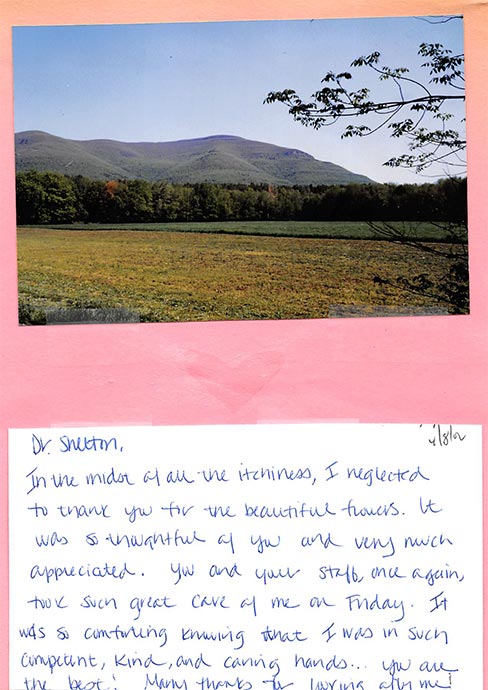 Dr. Shelton,
4/8/02
In the midst of all the itchiness, I neglected
to thank you for the beautiful flowers. It
was so thoughtful of you and very much
appreciated. You and your staff, once again,
took such great care of me on Friday. It
was so comforting knowing that I was in such
competent, kind, and caring hands... you are
the best! Many thanks for looking after me!